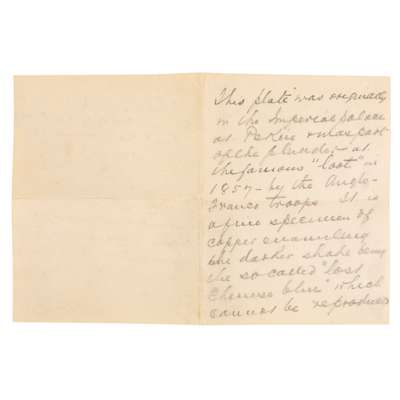 This plate was originally
in the Imperial palace
at Pekin & was part
of the plunder - at
the famous "loot" in
1857 - by the Anglo-
France troops It is
a fine specimen of
copper enamelling
the darker shade being
the so called "lost
Chinese blue" which
cannot be reproduced